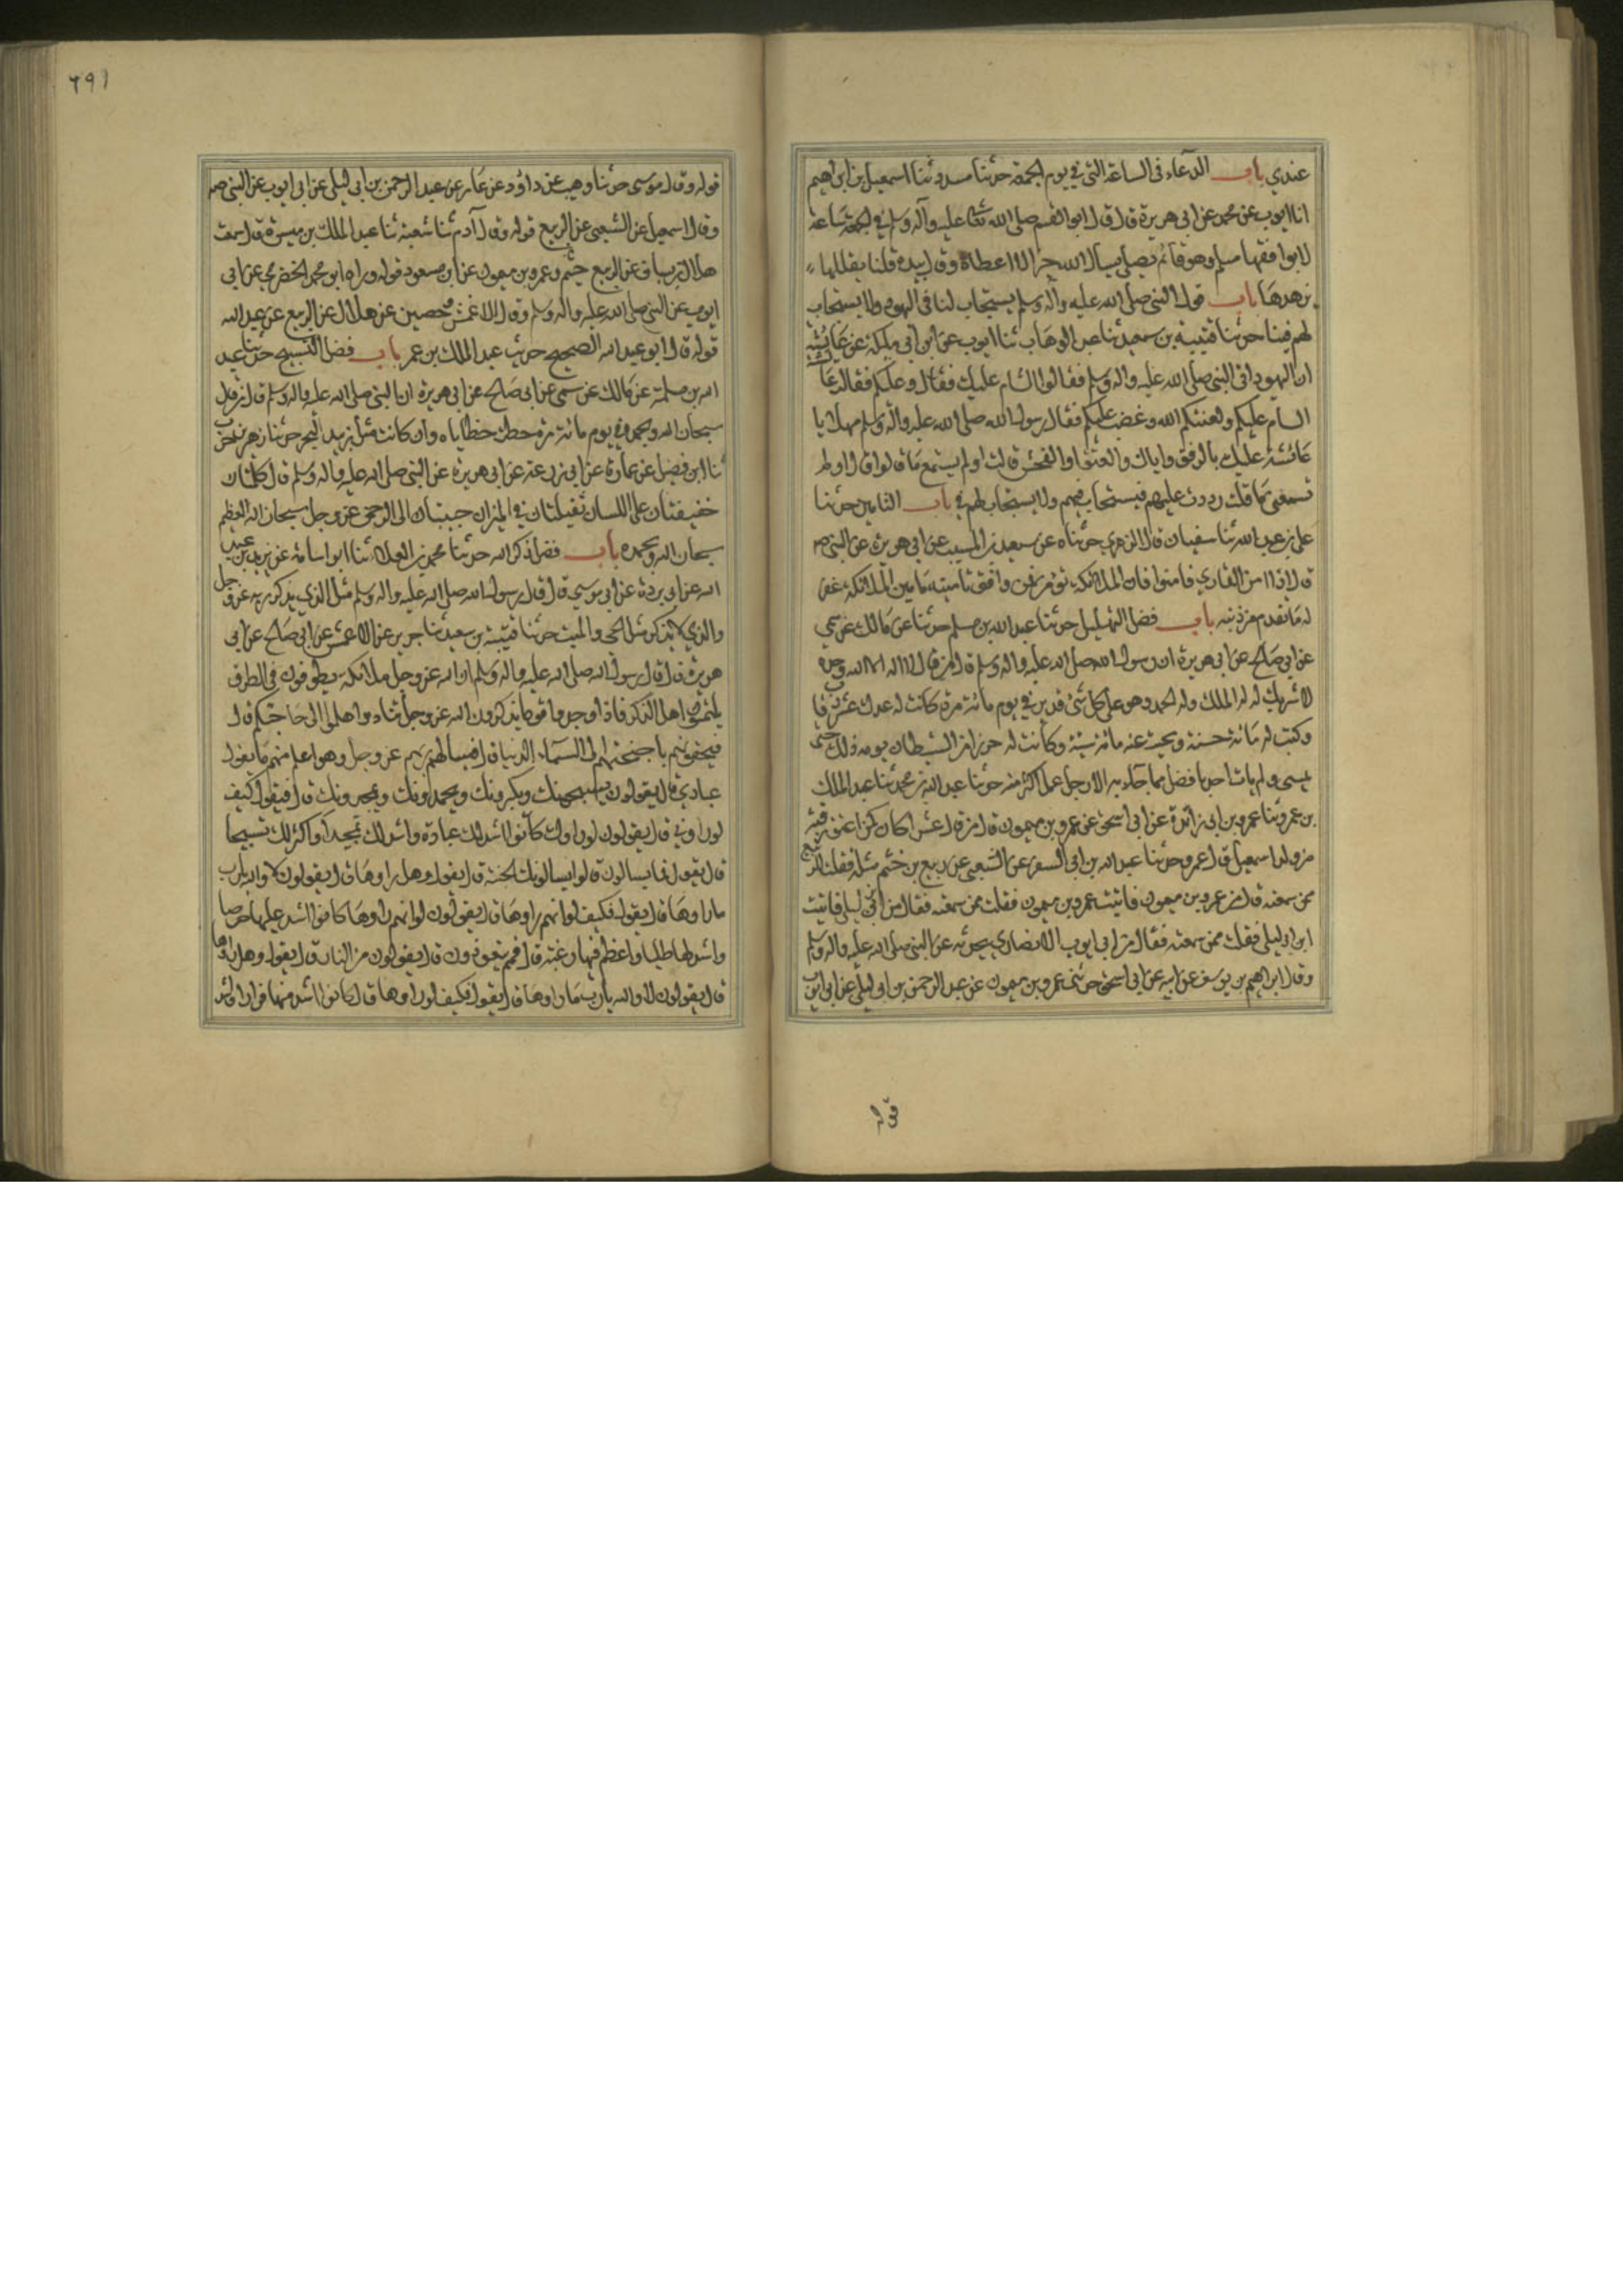 عندي باب الدعاء فى الساعة التى في يوم الجمعة حدثنا مسدد ثنا اسمعيل بن ابراهيم
انا ايوب عن محمد عن ابي هريرة قال قال ابو القسم صلى الله تعالى عليه وآله وسلم في الجمعة ساعة
لا يوافقها مسلم وهو قائم يصلي يسال الله خيرا الا اعطاه وقال بيده قلنا يقللها
يزهدها باب قول النبى صلى الله عليه وآله وسلم يستجاب لنا فى اليهود ولا يستجاب
لهم فينا حدثنا قتيبة بن سعيد ثنا عبد الوهاب ثنا ايوب عن ابن ابي مليكة عن عايشة
ان اليهود اتى النبى صلى الله عليه واله وسلم فقالوا السام عليك فقال وعليكم فقالت عائشة
السام عليكم ولعنكم الله وغضب عليكم فقال رسول الله صلى الله عليه وآله وسلم مهلا يا
عائشة عليك بالرفق واياك والعنف او الفحش قالت اولم يستمع ما قالوا قال اولم
تسمعى ما قلت رددت عليهم فيستجاب فيهم ولا يستجاب لهم في باب التامين حدثنا
على بن عبد الله ثنا سفيان قال الزهري حدثناه عن سعيد بن المسيب عن ابي هريرة عن النبى صم
قال اذا امن القاري فامنوا فان الملائكة تؤمن فمن وافق تامينه تامين الملائكة غفر
له ما تقدم من ذنبه باب فضل التهليل حدثنا عبد الله بن مسلم حدثنا عن مالك عن سمي
عن ابي صالح عن ابي هريرة ان رسول الله صلى الله عليه واله وسلم قال من قال لا اله الا الله وحده
لا شريك له له الملك وله الحمد وهو على كل شئ قدير في يوم مائة مرة كانت له عدل عشر رقاب
وكتب له مائة حسنة ومحيت عنه مائة سيئة وكانت له حرزا من الشيطان يومه ذلك حتى
يمسى ولم يات احد بافضل مما جاء به الا رجل عمل اكثر منه حدثنا عبد الله بن محمد ثنا عبد الملك
بن عمرو ثنا عمر بن ابي زائدة عن ابي اسحق عن عمرو بن ميمون قال من قال عشرا كان كمن اعتق رقبة
من ولد اسمعيل قال عمر وحدثنا عبد الله بن ابي السفر عن الشعبى عن ربيع بن خثيم مثله فقلت للربيع
ممن سمعته قال من عمرو بن ميمون فاتيت عمرو بن ميمون فقلت ممن سمعته فقال من ابن ابي ليلى فاتيت
ابن ابي ليلى فقلت ممن سمعته فقال من ابي ايوب الانصاري يحدثه عن النبى صلى الله عليه واله وسلم
وقال ابراهيم بن يوسف عن ابيه عن ابي اسحق حدثنى عمرو بن ميمون عن عبد الرحمن بن ابي ليلى عن ابي ايوب
قوله
٦٩١
قوله وقال موسى حدثنا وهيب عن داؤد عن عامر عن عبد الرحمن بن ابي ليلى عن ابي ايوب عن النبى صم
وقال اسمعيل عن الشعبى عن الربيع قوله وقال آدم ثنا شعبة ثنا عبد الملك بن ميسرة قال سمعت
هلال بن يساف عن الربيع خثيم وعمرو بن ميمون عن ابن مسعود قوله ورواه ابو محمد الحضرمى عن ابي
ايوب عن النبى صلى الله عليه واله وسلم وقال الاعمش وحصين عن هلال عن الربيع عن عبد الله
قوله قال ابو عبد الله الصحيح حديث عبد الملك بن عمر باب فضل التسبيح حدثنا عبد
الله بن مسلمة عن مالك عن سمى عن ابي صالح عن ابي هريرة ان النبى صلى الله عليه واله وسلم قال من قال
سبحان الله وبحمده في يوم مائة مرة حطت خطاياه وان كانت مثل زبد البحر حدثنا زهير بن حرب
ثنا ابن فضيل عن عمارة عن ابي زرعة عن ابي هريرة عن النبى صلى الله عليه واله وسلم قال كلمتان
خفيفتان على اللسان ثقيلتان في الميزان حبيبتان الى الرحمن عز وجل سبحان الله العظيم
سبحان الله وبحمده باب فضل ذكر الله حدثنا محمد بن العلاء ثنا ابو اسامة عن بريد بن عبد
الله عن ابي بردة عن ابي موسي قال قال رسول الله صلى الله عليه واله وسلم مثل الذي يذكر ربه عز وجل
والذي لا يذكر مثل الحى والميت حدثنا قتيبة بن سعيد ثنا جرير عن الاعمش عن ابي صالح عن ابي
هريرة قال قال رسول الله صلى الله عليه واله وسلم ان لله عز وجل ملائكة يطوفون فى الطرق
يلتمسون اهل الذكر فاذا وجدوا قوما يذكرون الله عز وجل تنادوا هلموا الى حاجتكم قال
فيحفونهم باجنحتهم الى السماء الدنيا قال فيسالهم ربهم عز وجل وهو اعلم منهم ما يقول
عبادي قال يقولون يسبحونك ويكبرونك ويحمدونك ويمجدونك قال فيقول كيف
لو راوني قال يقولون لو راوك كانوا اشد لك عبادة واشد لك تمجيدا واكثر لك تسبيحا
قال يقول فما يسالون قالوا يسالونك الجنة قال يقول وهل راوها قال يقولون لا والله يا رب
ما راوها قال يقول فكيف لو انهم راوها قال يقولون لو انهم راوها كانوا اشد عليها حرصا
واشد لها طلبا واعظم فيها رغبة قال فمم يتعوذون قال يقولون من النار قال يقول وهل راوها
قال يقولون لا والله يا رب ما راوها قال يقول فكيف لو راوها قال كانوا اشد منها فرارا واشد